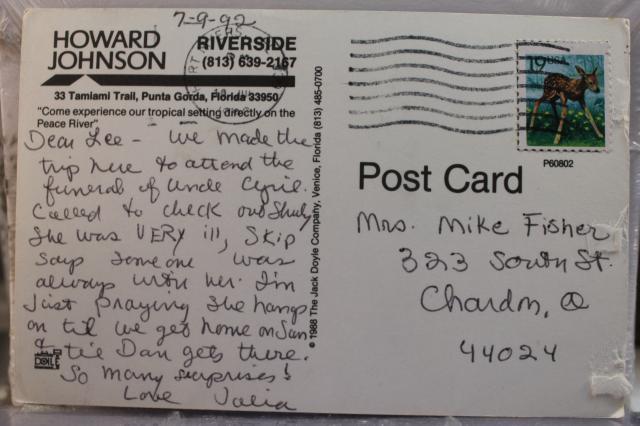 7-9-92
HOWARD
JOHNSON
RIVERSIDE
(813) 639-2167
33 Tamiami Trail, Punta Gorda, Florida 33950
"Come experience our tropical setting directly on the
Peace River"
Dear Lee - We made the
trip here to attend the
funeral of Uncle Cyril.
Called to check on
She was VERY ill, Skip
says someone was
always with her. I'm
Just praying she hangs
on til we get home on Sun
& til Dan gets there.
So many surprises!
Love Julia
© 1988 The Jack Doyle Company, Venice, Florida (813) 485-0700
19 USA
P60802
Post Card
Mrs. Mike Fisher
323 South St.
Chardon, O
44024